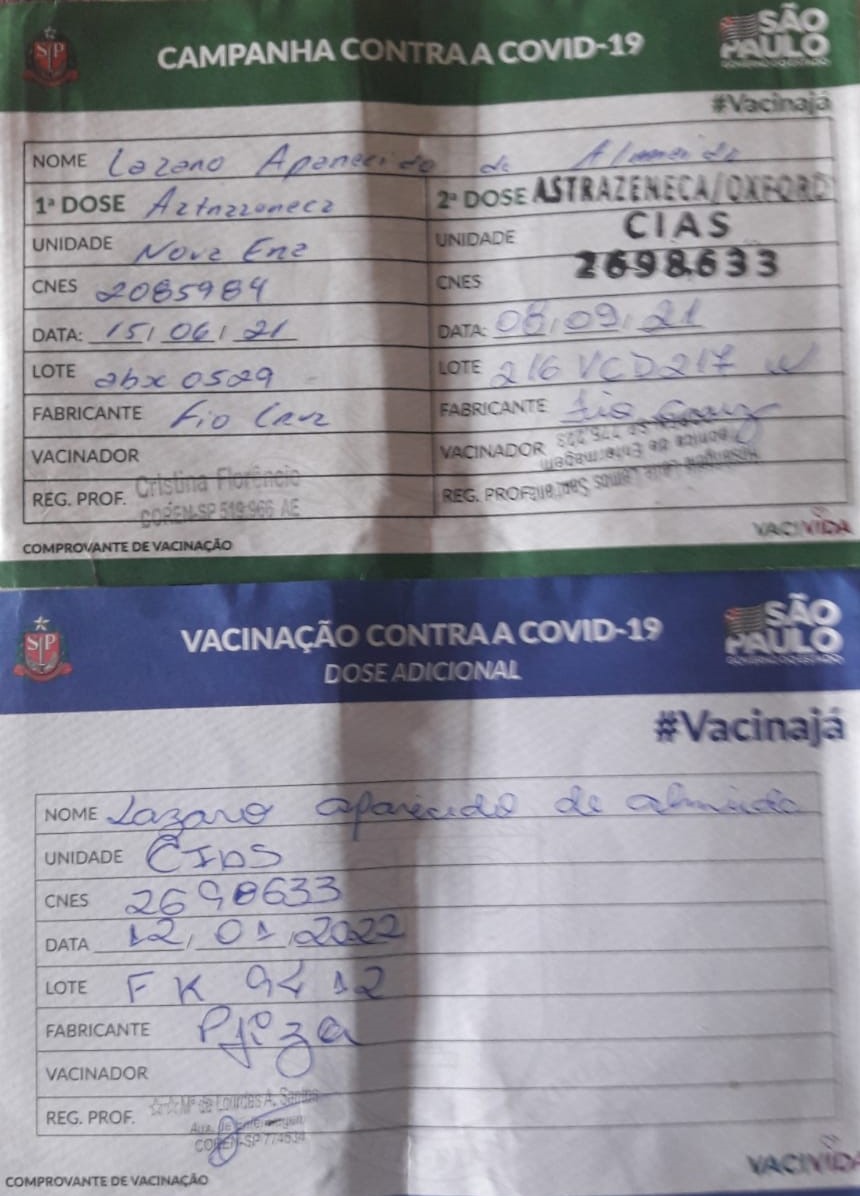 SP
CAMPANHA CONTRA A COVID-19
SÃO PAULO
GOVERNO DO ESTADO
#Vacinajá
NOME Lazaro Aparecido de Almeida
1ª DOSE Aztrazzeneca
2ª DOSE ASTRAZENECA/OXFORD
UNIDADE Nova Era
UNIDADE CIAS
CNES 2085984
CNES 2698633
DATA: 15/06/21
DATA: 08/09/21
LOTE abx 0529
LOTE 216 VCD217 W
FABRICANTE Fio Cruz
FABRICANTE Fio Cruz
VACINADOR
VACINADOR
REG. PROF. Cristina Florêncio
COREN-SP 519.966 AE
REG. PROF.
COMPROVANTE DE VACINAÇÃO
VACIVIDA
SP
VACINAÇÃO CONTRA A COVID-19
DOSE ADICIONAL
SÃO PAULO
GOVERNO DO ESTADO
#Vacinajá
NOME Lazaro aparecido de almeida
UNIDADE CIAS
CNES 2698633
DATA 12/01/2022
LOTE FK 9412
FABRICANTE Pfiza
VACINADOR
REG. PROF. Mª de Lourdes A. Santos
Aux. de Enfermagem
COREN-SP 774534
COMPROVANTE DE VACINAÇÃO
VACIVIDA